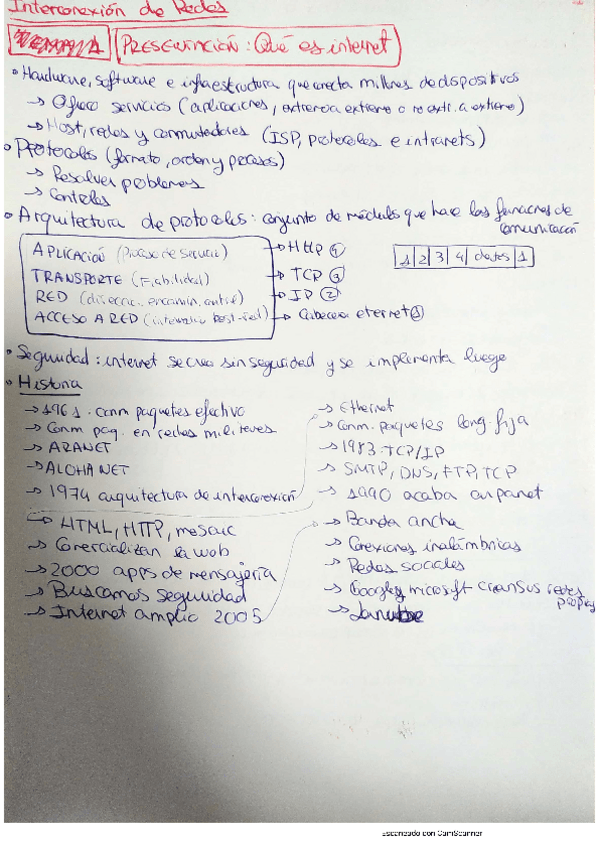 Interconexión de Redes
PRESENTACIÓN: Qué es internet
• Hardware, software e infraestructura que conecta millones de dispositivos
→ Ofrece servicios (aplicaciones, extremo a extremo o no extr. a extremo)
→ Host, redes y conmutadores (ISP, protocolos e intranets)
• Protocolos (formato, orden y procesos)
→ Resolver problemas
→ Controles
• Arquitectura de protocolos: conjunto de módulos que hace las funciones de
comunicación
APLICACIÓN (Proceso de servicio) → HTTP 4
TRANSPORTE (Fiabilidad) → TCP 3
RED (direcc., encamin,) → IP 2
ACCESO A RED (host-red) → Cabecera eternet 1
1 2 3 4 datos 1
• Seguridad: internet se creo sin seguridad y se implementa luego
• Historia
→ 1961. conm paquetes efectivo
→ Conm paq. en redes militares
→ ARANET
→ ALOHANET
→ 1974 arquitectura de interconexión
→ Ethernet
→ Conm. paquetes long. fija
→ 1983 TCP/IP
→ SMTP, DNS, FTP, TCP
→ 1990 acaba arpanet
→ HTML, HTTP, mosaic
→ Comercializan la web
→ 2000 apps de mensajería
→ Buscamos seguridad
→ Internet amplio 2005
→ Banda ancha
→ Conexiones inalámbricas
→ Redes sociales
→ Google y microsoft crean sus redes
propias
→ La nube
Escaneado con CamScanner